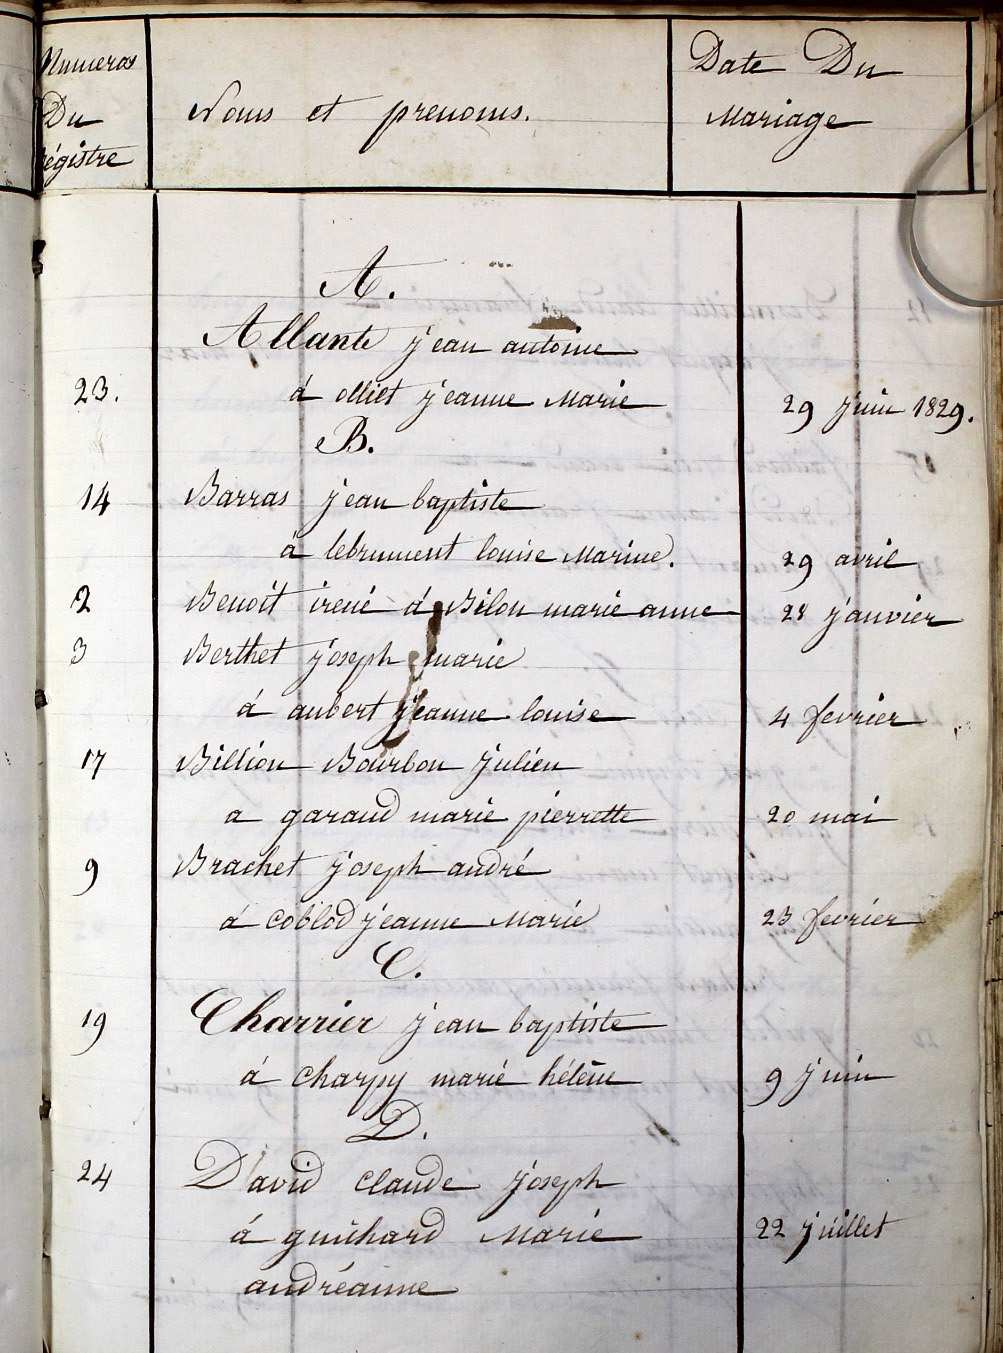 Numeros
Du
Régistre
Noms et prenoms.
Date Du
Mariage
A.
Allante jean antoine
23. á olliet jeanne Marie 29 juin 1829.
B.
14 Barras jean baptiste
á lebrument louise Marine. 29 avril
2 Benoit irené á Bilon marie anne 28 janvier
3 Berthet joseph marie
á aubert jeanne louise 4 fevrier
17 Billion Bourbon julien
a garaud marie pierrette 20 mai
9 Brachet joseph andré
á coblod jeanne Marie 23 fevrier
C.
19 Charrier jean baptiste
á charpy marie hélène 9 juin
D.
24 David claude joseph
á guichard Marie 22 juillet
andréanne